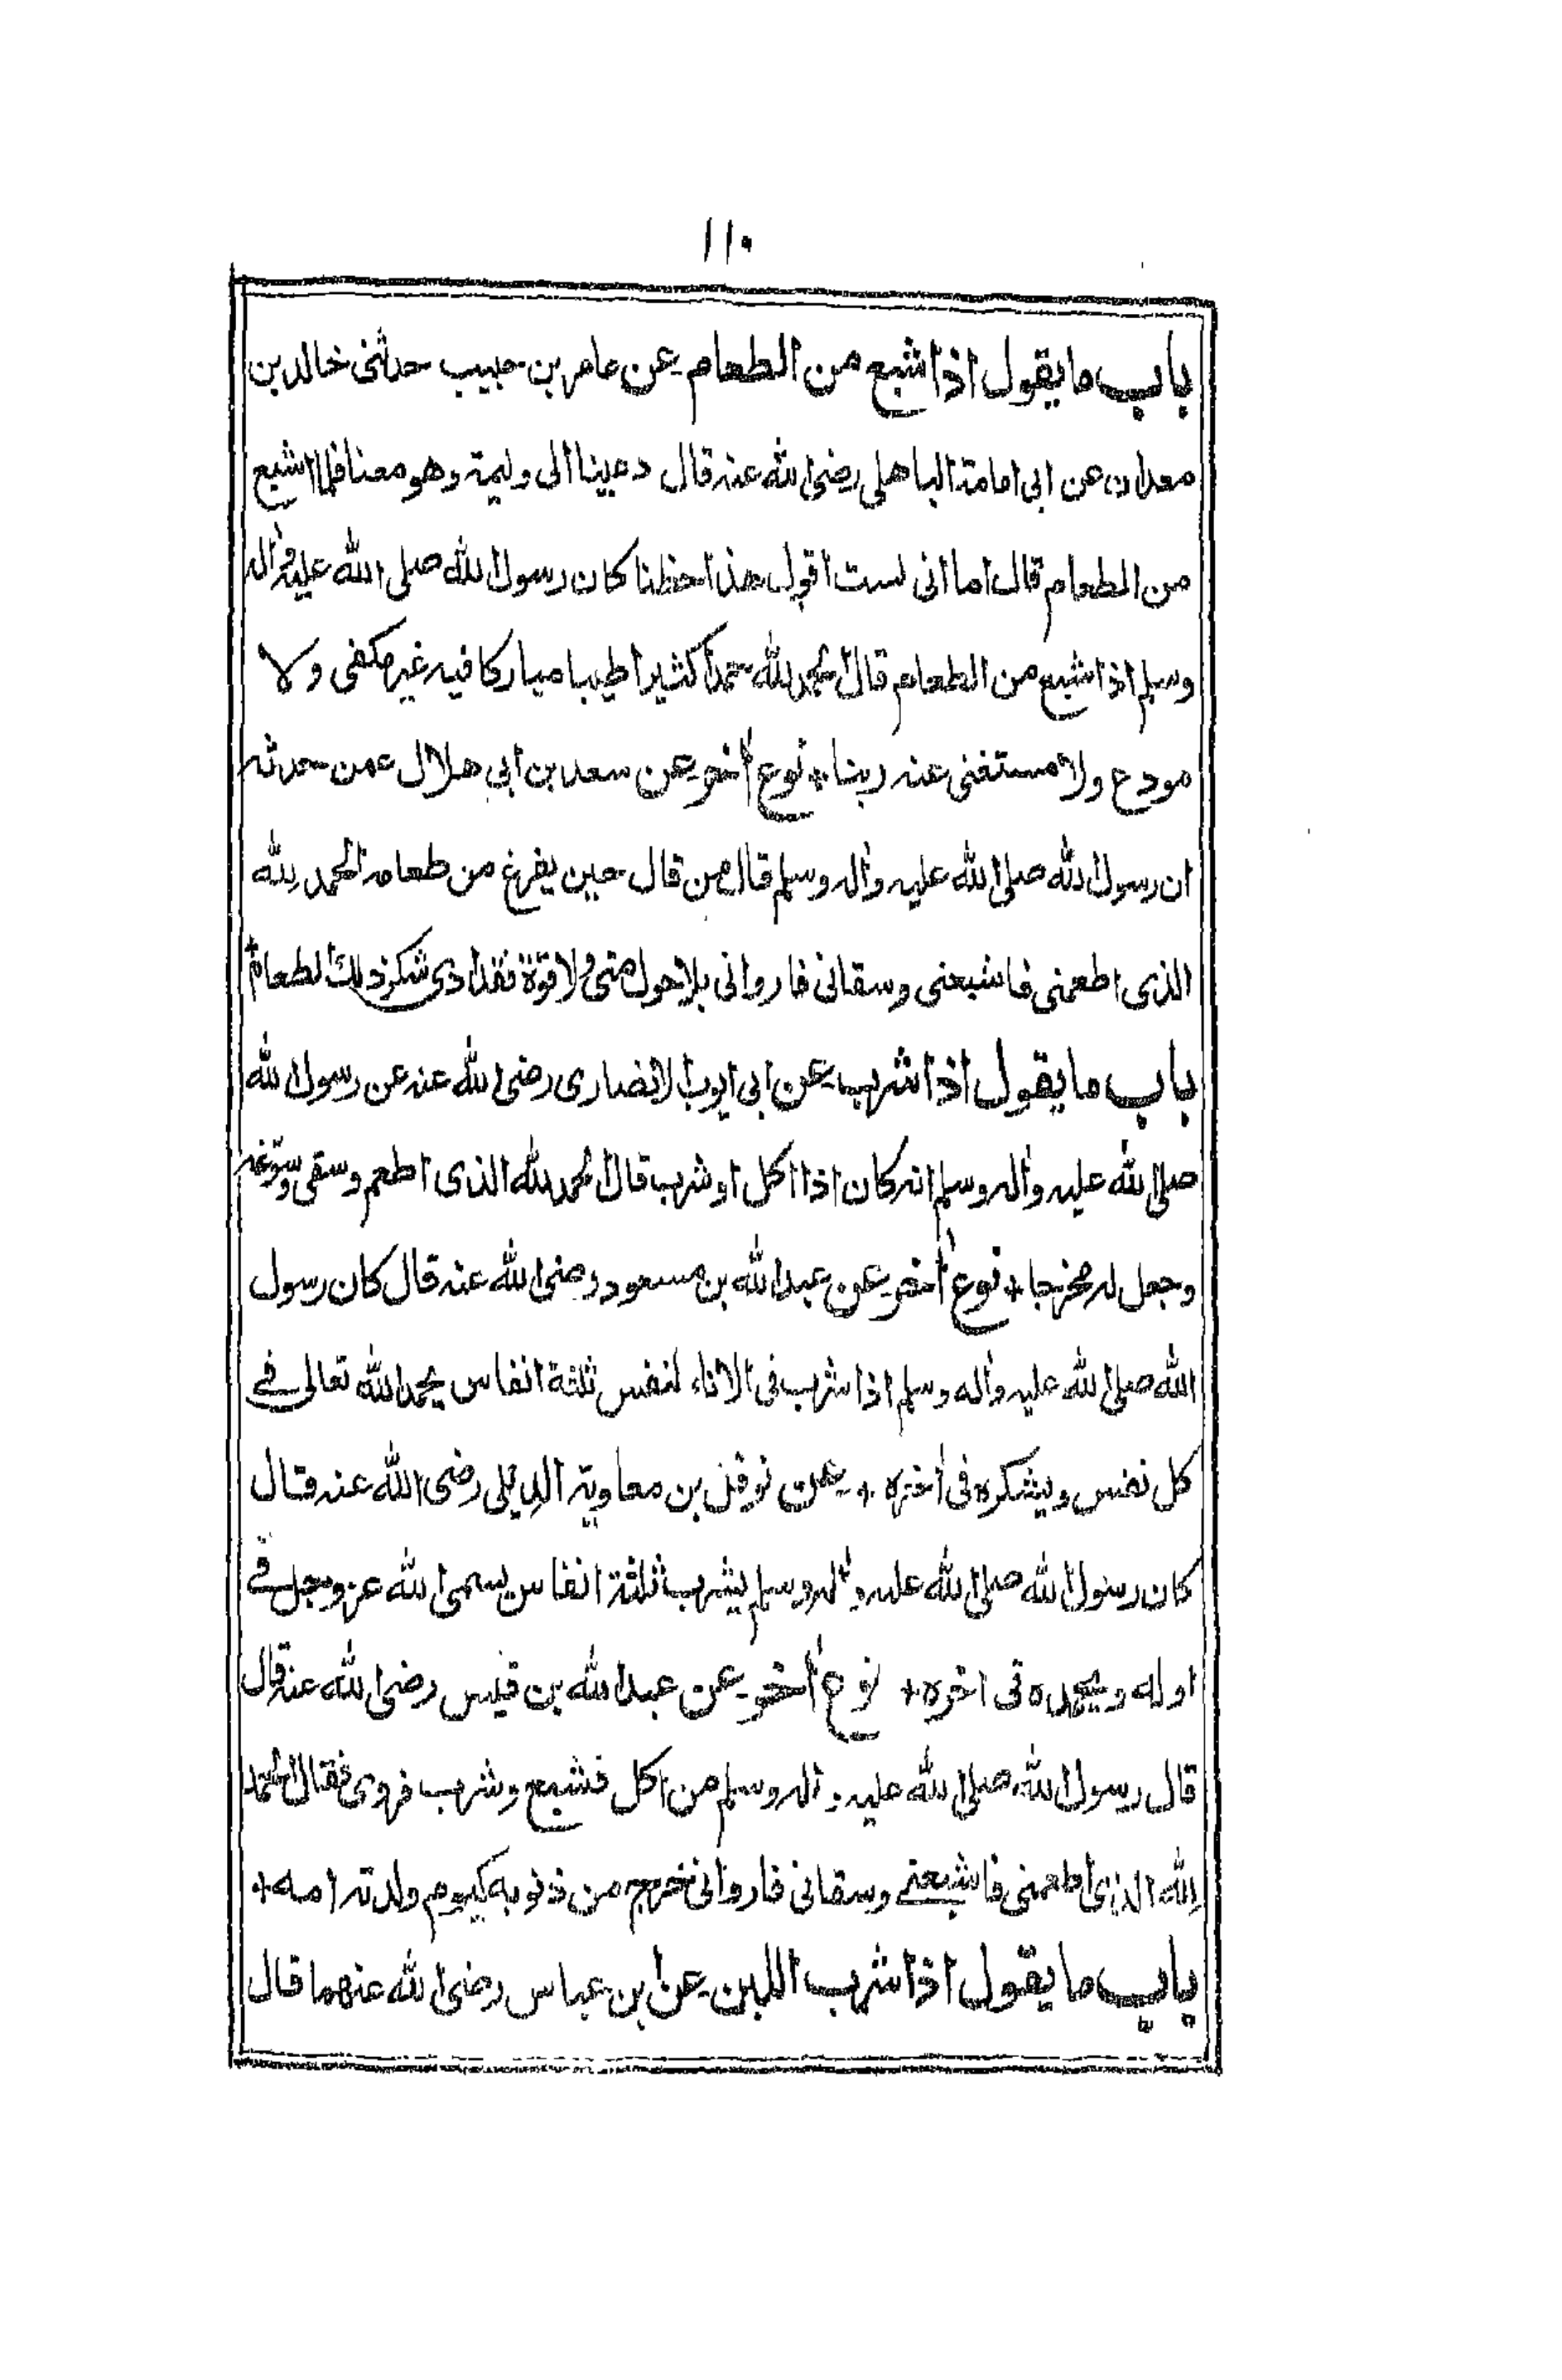 ١١٠
باب ما يقول اذا شبع من الطعام عن عامر بن حبيب حدثنى خالد بن
معدان عن ابى امامة الباهلى رضى الله عنه قال دعينا الى وليمة وهو معنا فلما اشبع
من الطعام قال اما انى لست اقول هذا حفظنا كان رسول الله صلى الله عليه واٰله
وسلم اذا شبع من الطعام قال الحمد لله حمدا كثيرا طيبا مباركا فيه غير مكفى ولا
مودع ولا مستغنى عنه ربنا + نوع اٰخر عن سعد بن ابى هلال عمن حدثه
ان رسول الله صلى الله عليه واٰله وسلم قال من قال حين يفرغ من طعامه الحمد لله
الذى اطعمنى فاشبعنى وسقانى فاروانى بلا حول منى ولا قوة فقد ادى شكر ذلك الطعام +
باب ما يقول اذا شرب عن ابى ايوب الانصارى رضى الله عنه عن رسول الله
صلى الله عليه واٰله وسلم انه كان اذا اكل او شرب قال الحمد لله الذى اطعم وسقى وسوّغه
وجعل له مخرجا + نوع اٰخر عن عبد الله بن مسعود رضى الله عنه قال كان رسول
الله صلى الله عليه واٰله وسلم اذا شرب فى الاناء تنفس ثلثة انفاس يحمد الله تعالى فى
كل نفس ويشكره فى اٰخره + عن نوفل بن معاوية الديلى رضى الله عنه قال
كان رسول الله صلى الله عليه واٰله وسلم يشرب ثلثة انفاس يسمى الله عز وجل فى
اوله ويحمده فى اخره + نوع اٰخر عن عبد الله بن قيس رضى الله عنه قال
قال رسول الله صلى الله عليه واٰله وسلم من اكل فشبع وشرب فروى فقال الحمد
لله الذى اطعمنى فاشبعنى وسقانى فاروانى خرج من ذنوبه كيوم ولدته امه +
باب ما يقول اذا شرب اللبن عن ابن عباس رضى الله عنهما قال